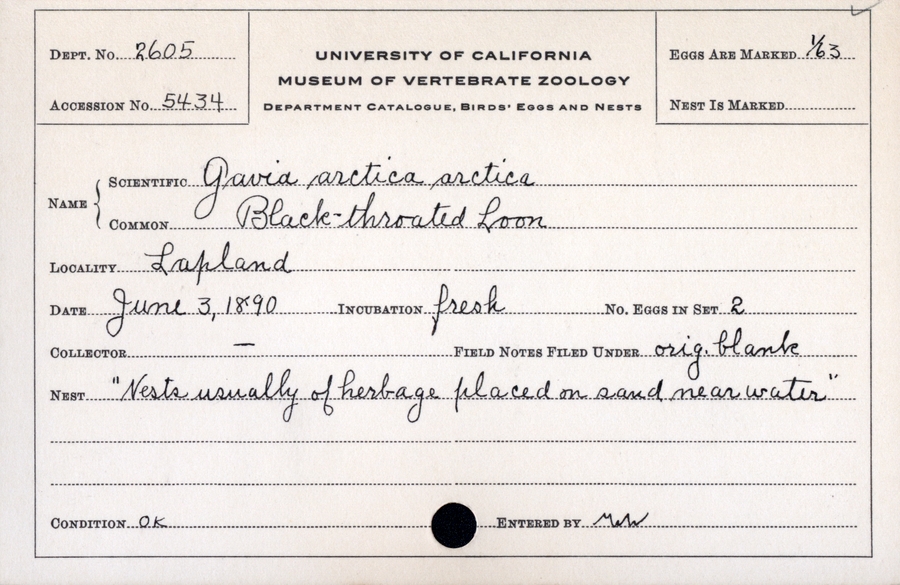 Dept. No. 2605
Accession No. 5434
University of California
Museum of Vertebrate Zoology
Department Catalogue, Birds' Eggs and Nests
Eggs Are Marked 1/63
Nest Is Marked
Name
Scientific Gavia arctica arctica
Common Black-throated Loon
Locality Lapland
Date June 3, 1890 Incubation fresh No. Eggs in Set 2
Collector — Field Notes Filed Under orig. blank
Nest "Nests usually of herbage placed on sand near water"
Condition OK Entered by